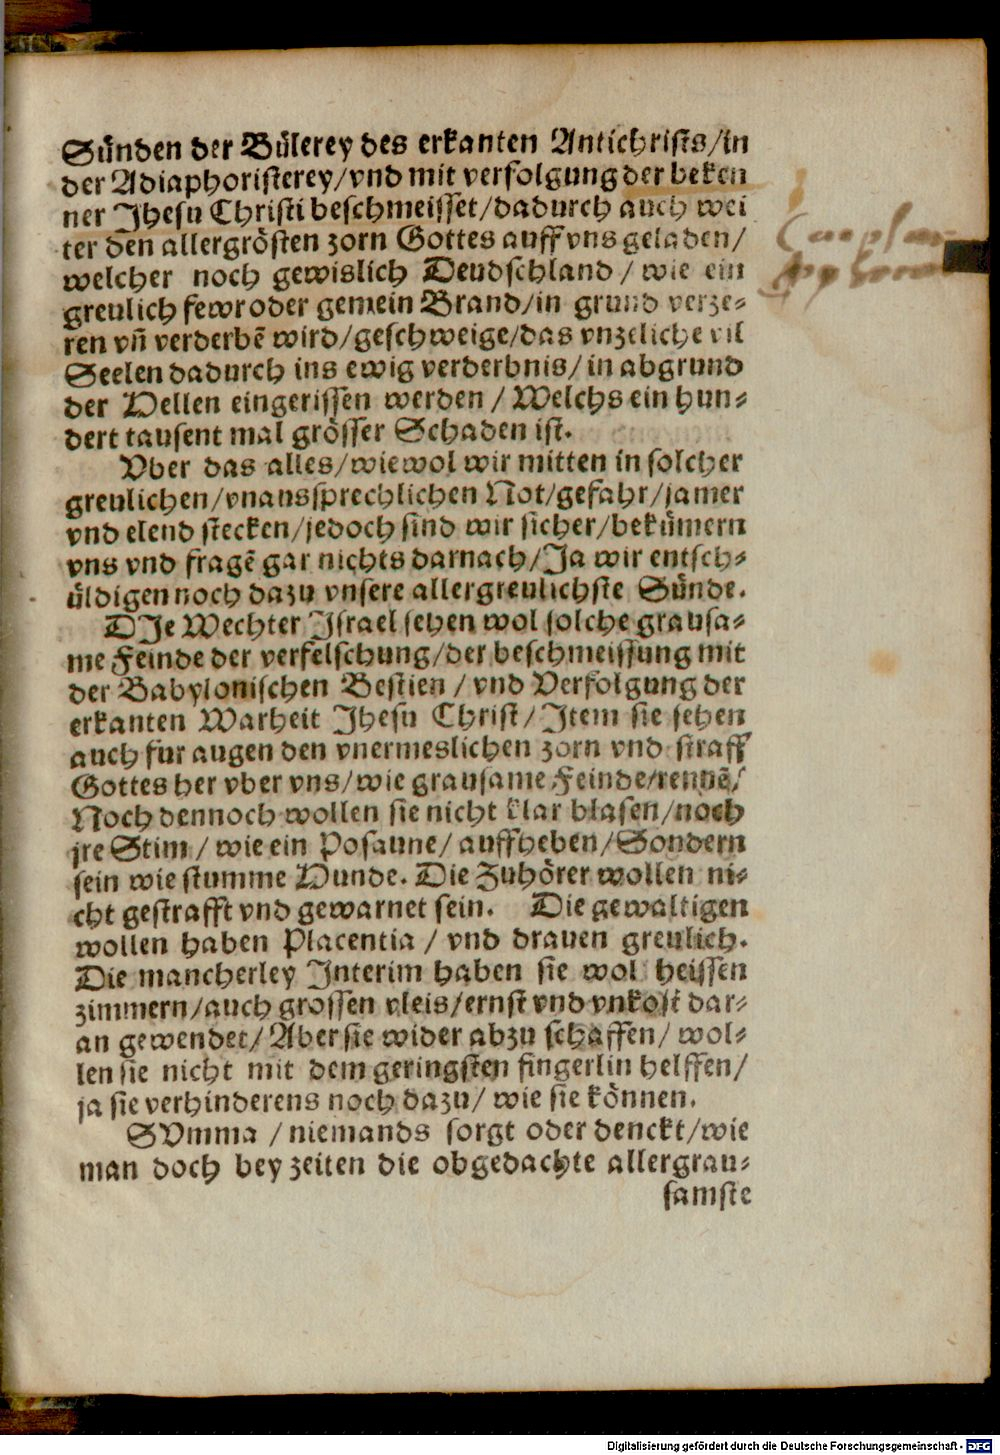 Sünden der Bülerey des erkanten Antichrists/in
der Adiaphoristerey/vnd mit verfolgung der beken
ner Jhesu Christi beschmeisset/dadurch auch wei
ter den allergrösten zorn Gottes auff vns geladen/
welcher noch gewislich Deudschland / wie ein
greulich fewr oder gemein Brand/in grund verze-
ren vñ verderbẽ wird/geschweige/das vnzeliche vil
Seelen dadurch ins ewig verderbnis/in abgrund
der Hellen eingerissen werden / Welchs ein hun-
dert tausent mal grösser Schaden ist.
Vber das alles/wiewol wir mitten in solcher
greulichen/vnaussprechlichen Not/gefahr/jamer
vnd elend stecken/jedoch sind wir sicher/bekümern
vns vnd fragẽ gar nichts darnach/Ja wir entsch-
üldigen noch dazu vnsere allergreulichste Sünde.
DJe Wechter Jsrael sehen wol solche grausa-
me Feinde der verfelschung/der beschmeissung mit
der Babylonischen Bestien / vnd Verfolgung der
erkanten Warheit Jhesu Christ/Jtem sie sehen
auch fur augen den vnermeslichen zorn vnd straff
Gottes her vber vns/wie grausame Feinde/rennẽ/
Noch dennoch wollen sie nicht klar blasen/noch
jre Stim/ wie ein Posaune/ auffheben/Sondern
sein wie stumme Hunde. Die Zuhörer wollen ni-
cht gestrafft vnd gewarnet sein. Die gewaltigen
wollen haben Placentia / vnd drauen greulich.
Die mancherley Jnterim haben sie wol heissen
zimmern/auch grossen vleis/ernst vnd vnkost dar-
an gewendet/Aber sie wider abzu schaffen/ wol-
len sie nicht mit dem geringsten fingerlin helffen/
ja sie verhinderens noch dazu/ wie sie können.
SVmma /niemands sorgt oder denckt/wie
man doch bey zeiten die obgedachte allergrau-
samste
Digitalisierung gefördert durch die Deutsche Forschungsgemeinschaft - DFG